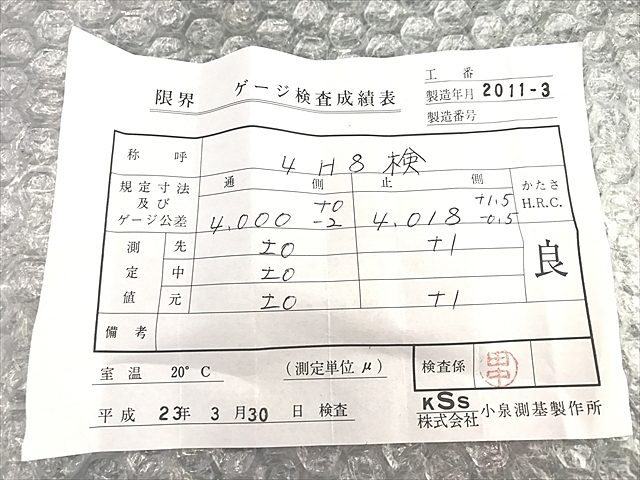 工番
限界 ゲージ検査成績表
製造年月 2011-3
製造番号
称呼 4 H8 検
規定寸法及びゲージ公差
通側
4.000 +0 -2
止側
4.018 +1.5 -0.5
かたさ H.R.C.
良
測定値
先 ±0 +1
中 ±0
元 ±0 +1
備考
室温 20°C
(測定単位 μ)
検査係 田中
平成 23年 3月30日 検査
KSS
株式会社 小泉測基製作所